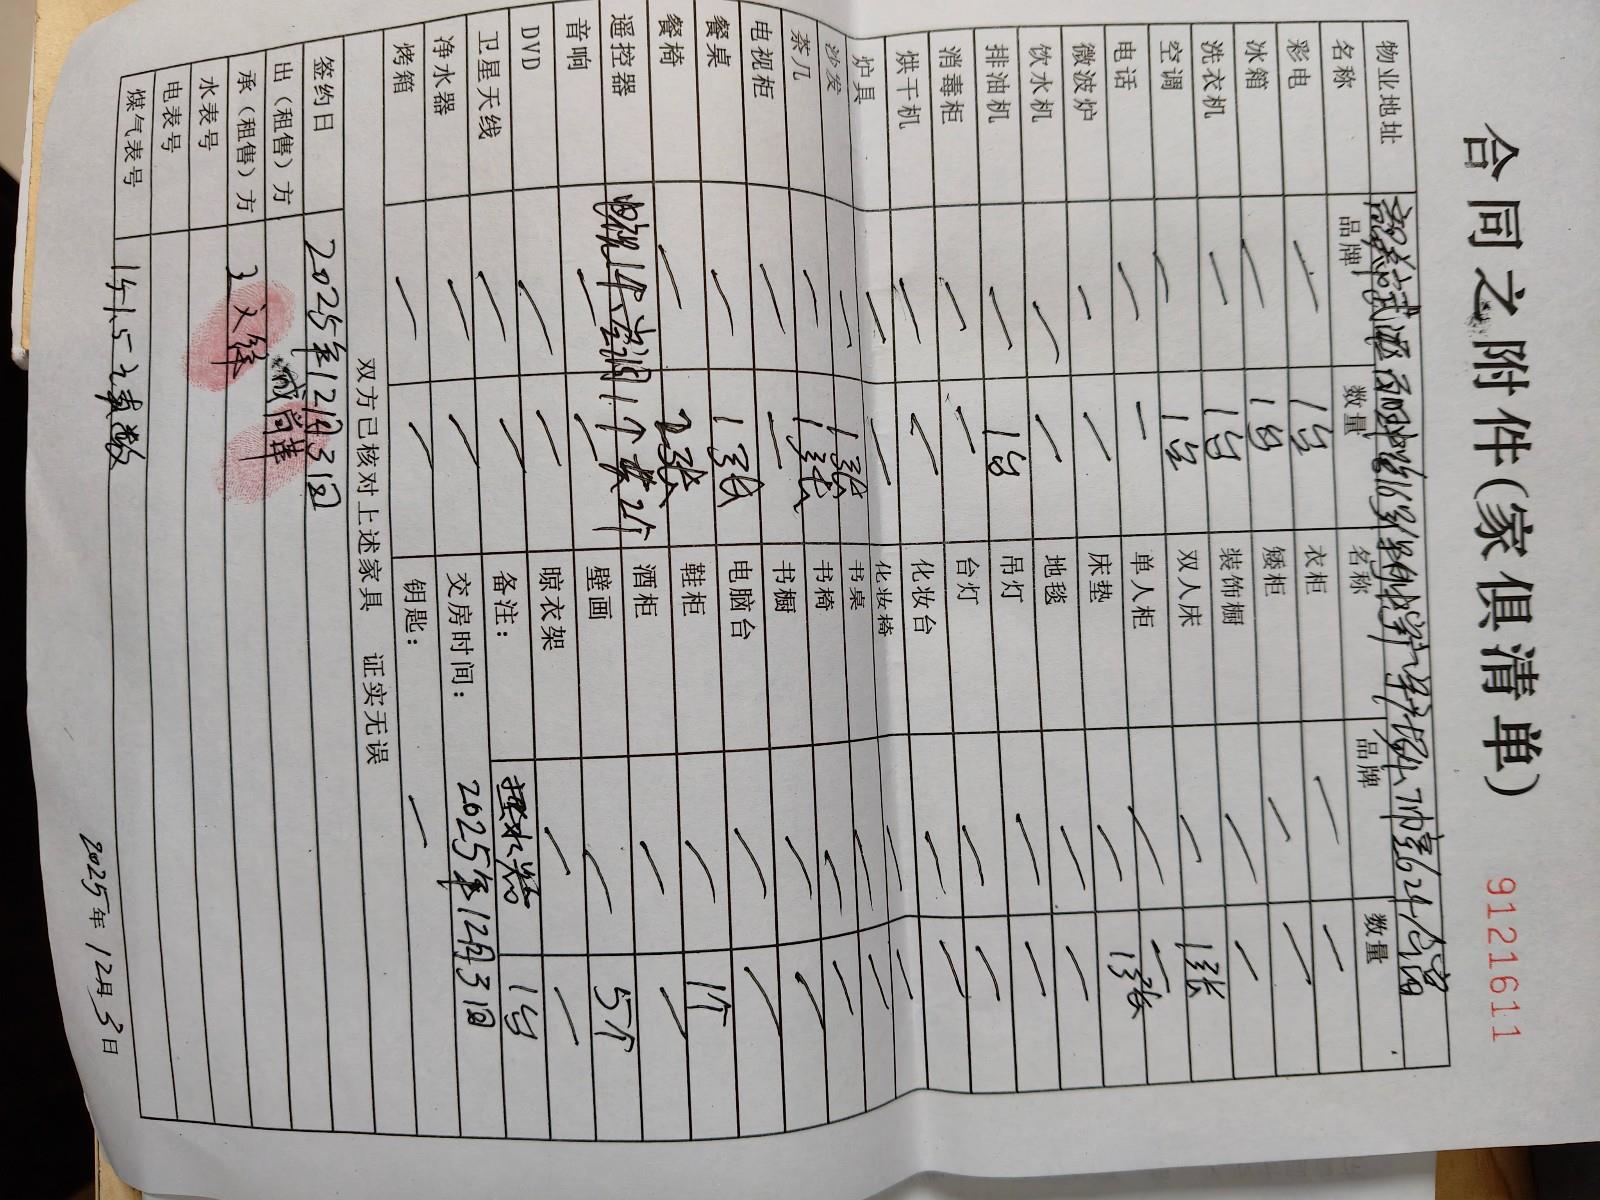 合同之附件(家俱清单)
9121611
物业地址
名称 品牌 数量 名称 品牌 数量
彩电 — 1台 衣柜 — —
冰箱 — 1台 矮柜 — —
洗衣机 — 1台 装饰橱 — —
空调 — 1台 双人床 — 1张
电话 — — 单人柜 — 1张
微波炉 — — 床垫 — —
饮水机 — — 地毯 — —
排油机 — 1台 吊灯 — —
消毒柜 — — 台灯 — —
烘干机 — — 化妆台 — —
炉具 — — 化妆椅 — —
沙发 — 1张 书桌 — —
茶几 — 1张 书椅 — —
电视柜 — — 书橱 — —
餐桌 — 1张 电脑台 — —
餐椅 — 2张 鞋柜 — 1个
遥控器 电视1个 空调1个 酒柜 — —
音响 — — 壁画 — 5个
DVD — — 晾衣架 — —
卫星天线 — — 备注: 热水器 1台
净水器 — — 交房时间: 2025年12月3日
烤箱 — — 钥匙: —
双方已核对上述家具 证实无误
签约日 2025年12月3日
出(租售)方
承(租售)方
水表号
电表号
煤气表号
2025年12月3日